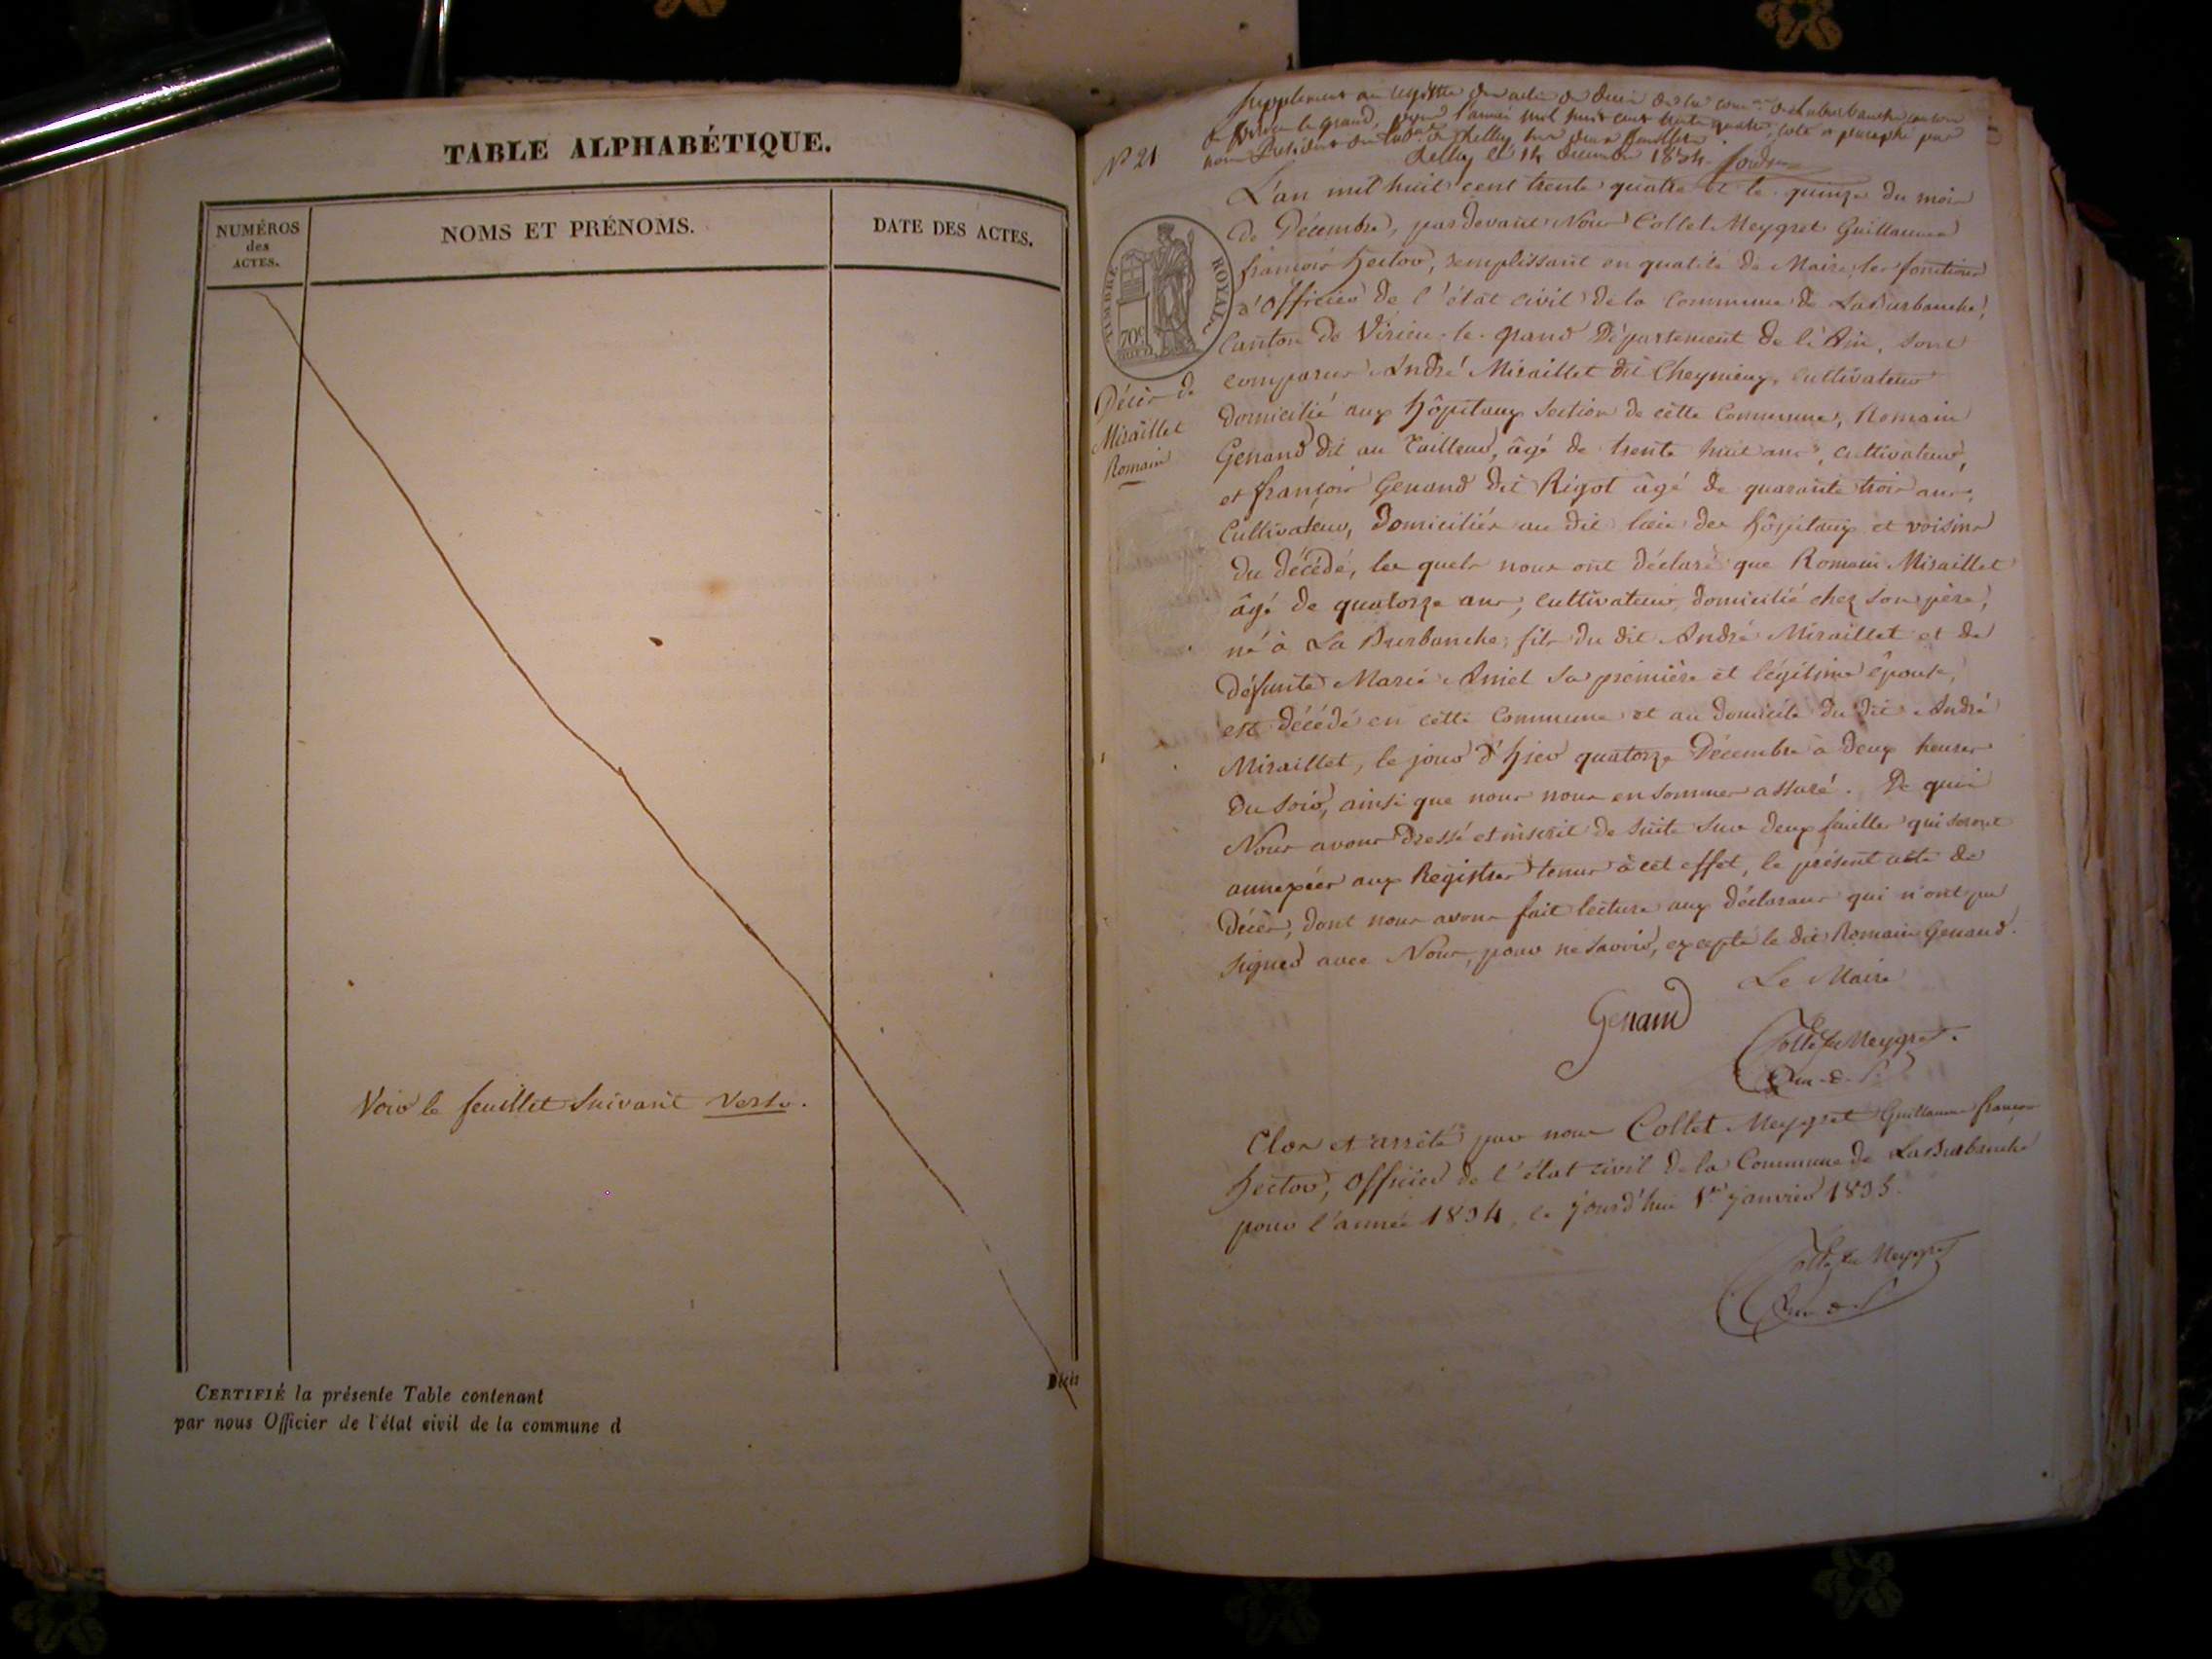 TABLE ALPHABÉTIQUE.
NUMÉROS
des
ACTES.
NOMS ET PRÉNOMS.
DATE DES ACTES.
Voir le feuillet suivant verso.
CERTIFIÉ la présente Table contenant
par nous Officier de l'état civil de la commune d
Décès
Supplement au registre des actes de décès de la com.ne de Laburbanche canton
de Virieu le grand, pour l'année mil huit cent trente quatre, coté et paraphé par
nous Président du de Belley deux feuillets.
Belley le 14 décembre 1834.
N° 21
TIMBRE ROYAL
70c
Décès de
Miraillet
Romain
L'an mil huit cent trente quatre et le quinze du mois
de Décembre, pardevant Nous Collet Meygret Guillaume
françois hector, remplissant en qualité de Maire, les fonctions
d'Officier de l'état civil de la Commune de LaBurbanche,
Canton de Virieu-le-grand Département de l'Ain, sont
comparus André Miraillet dit Cheynieux, cultivateur
domicilié aux hôpitaux section de cette Commune, Romain
Genand dit au Tailleur, âgé de trente huit ans, cultivateur,
et françois Genand dit Rigot âgé de quarante trois ans,
Cultivateur, domiciliés au dit lieu des hôpitaux et voisins
du décédé, les quels nous ont déclaré que Romain Miraillet
âgé de quatorze ans, cultivateur, domicilié chez son père,
né à La Burbanche, fils du dit André Miraillet et de
défunte Marie Amiel sa première et légitime épouse,
est décédé en cette Commune et au domicile du dit André
Miraillet, le jour d'hier quatorze Décembre à deux heures
du soir, ainsi que nous nous en sommes assuré. De quoi
Nous avons dressé et inscrit de suite sur deux feuilles qui seront
annexées aux Registres tenus à cet effet, le présent acte de
décès, dont nous avons fait lecture aux déclarans qui n'ont pu
signer avec Nous, pour ne savoir, excepté le dit Romain Genand.
Le Maire
Genand
Collet Meygret
Clos et arrêté par nous Collet Meygret Guillaume françois
hector, Officier de l'état civil de la Commune de LaBurbanche
pour l'année 1834, le jourd'hui 1er janvier 1835.
Collet Meygret